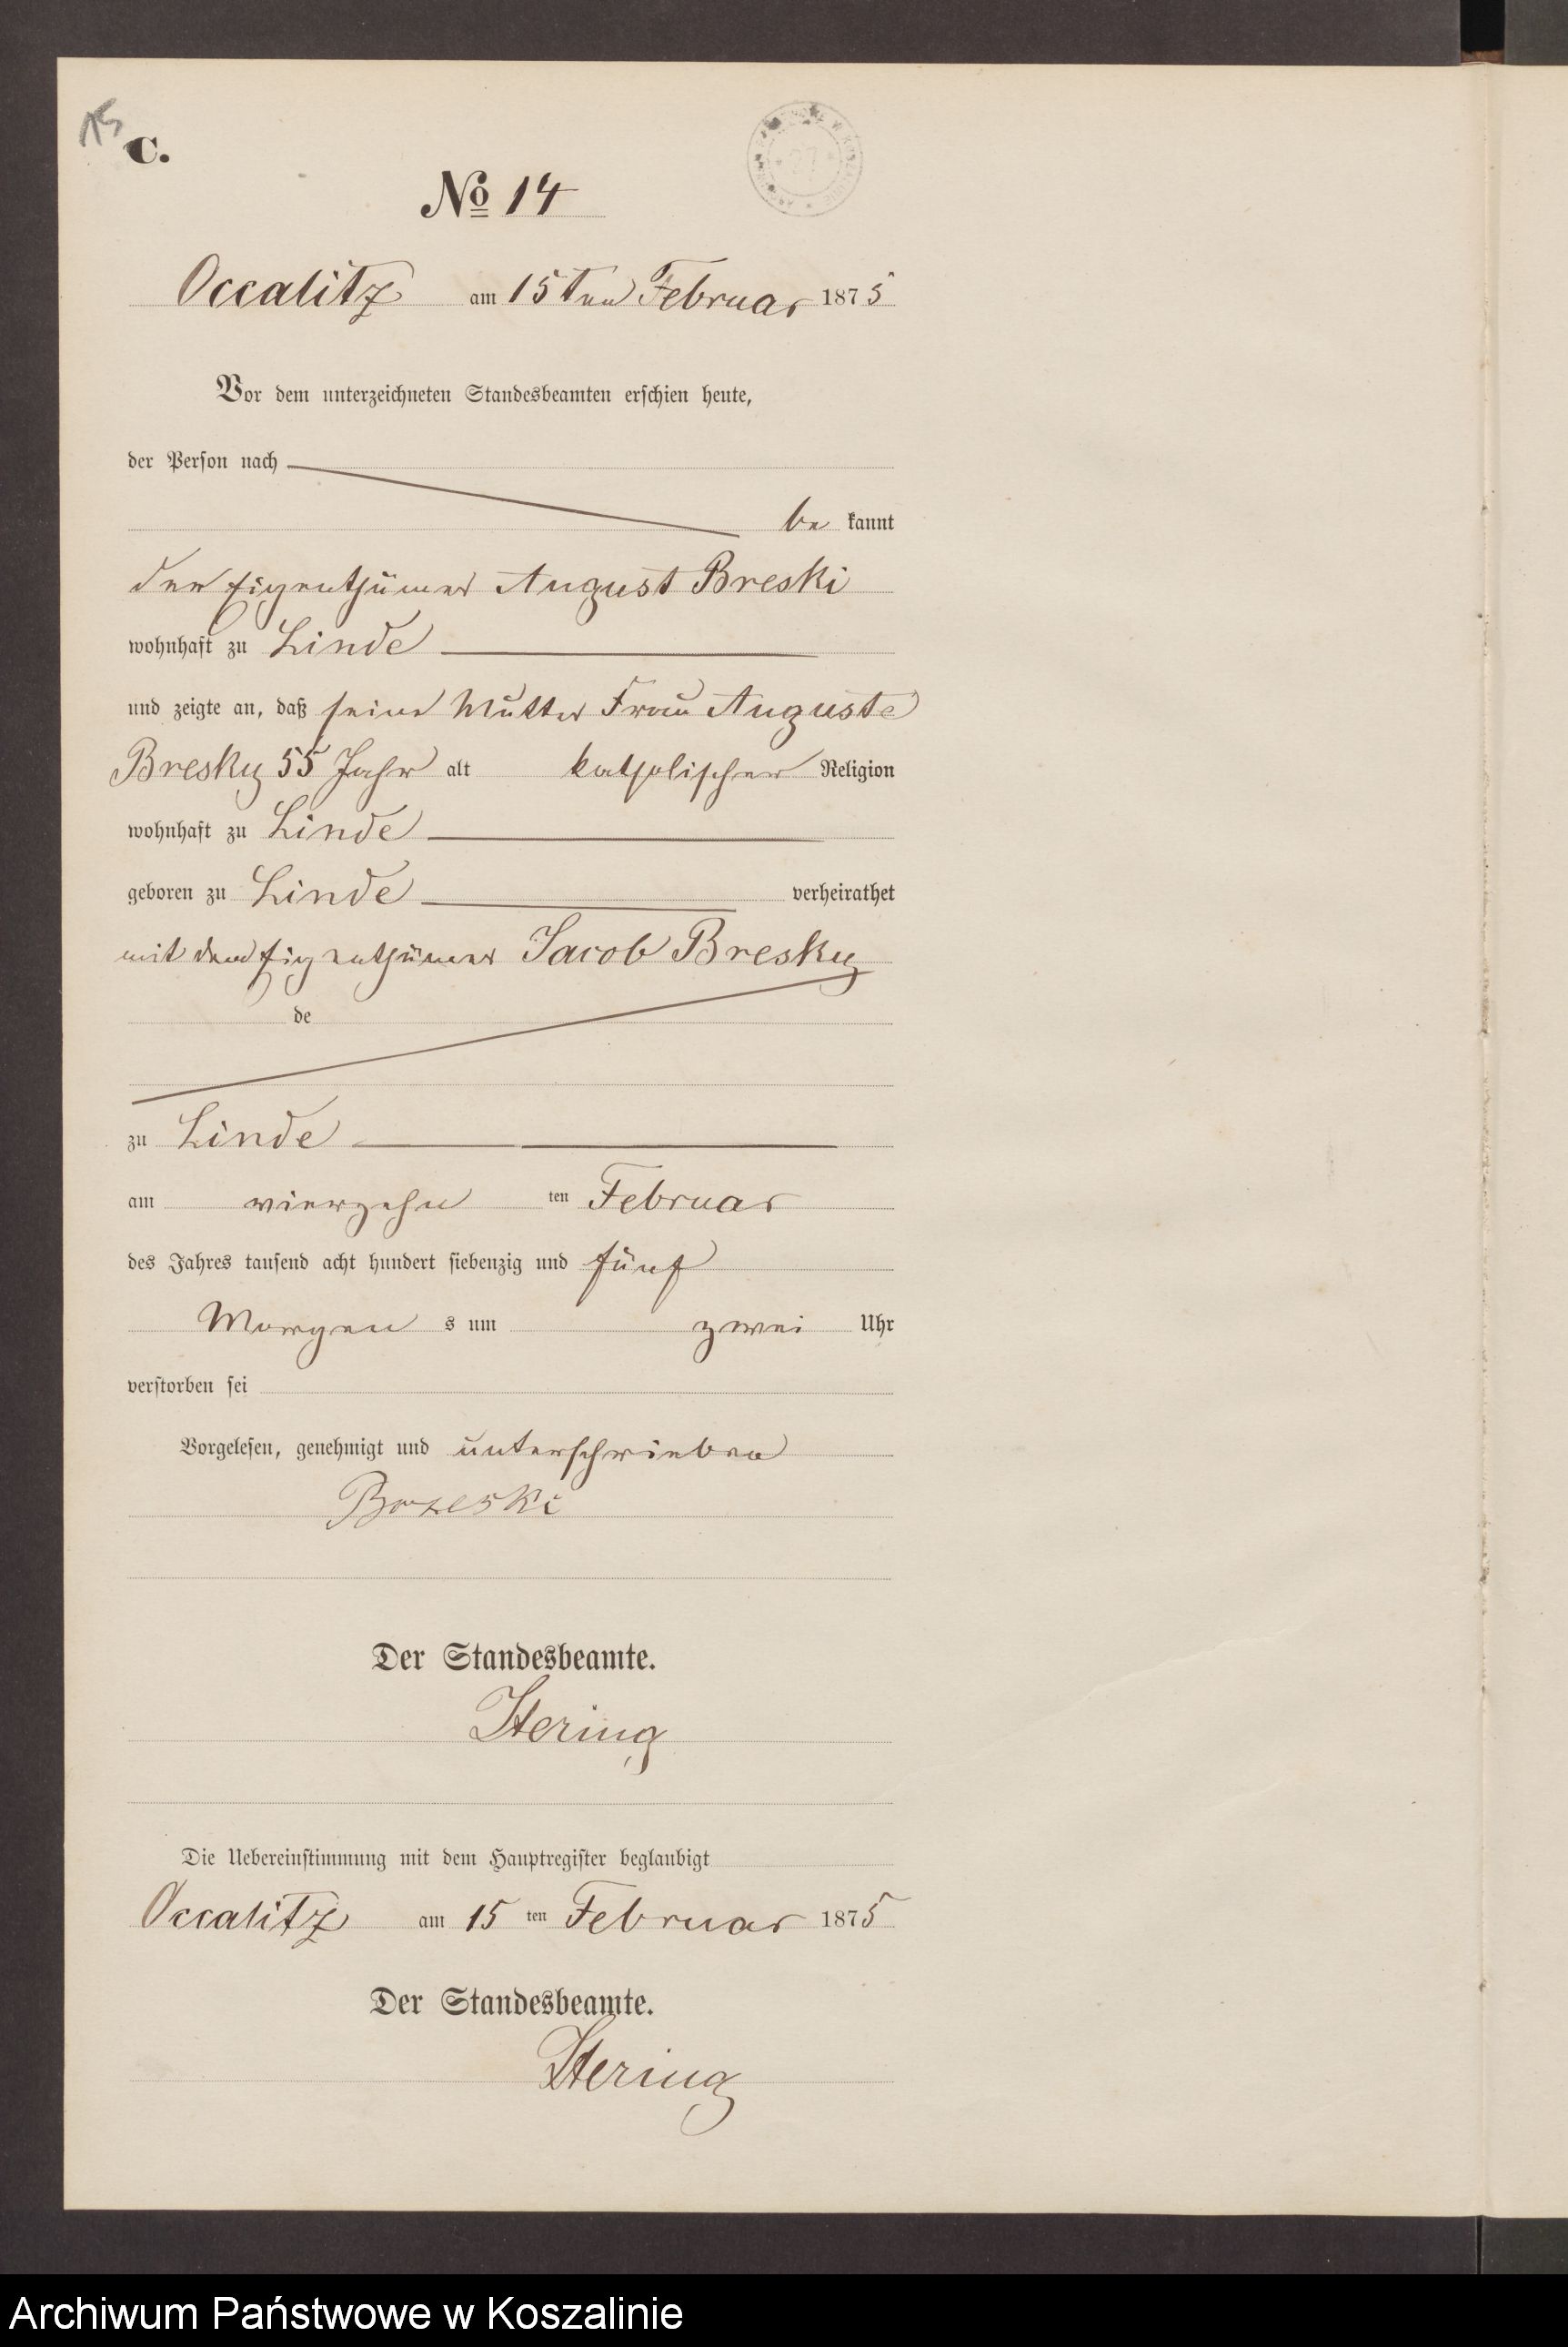 15
C.
No 14
Occalitz am 15ten Februar 1875
Vor dem unterzeichneten Standesbeamten erschien heute,
der Person nach
be kannt
der Eigenthümer August Breski
wohnhaft zu Linde
und zeigte an, daß seine Mutter Frau Auguste
Bresky 55 Jahr alt katholischer Religion
wohnhaft zu Linde
geboren zu Linde verheirathet
mit dem Eigenthümer Jacob Bresky
de
zu Linde
am vierzehn ten Februar
des Jahres tausend acht hundert siebenzig und fünf
Morgen s um zwei Uhr
verstorben sei
Vorgelesen, genehmigt und unterschrieben
Brzeski
Der Standesbeamte.
Hering
Die Uebereinstimmung mit dem Hauptregister beglaubigt
Occalitz am 15 ten Februar 1875
Der Standesbeamte.
Hering
Archiwum Państwowe w Koszalinie